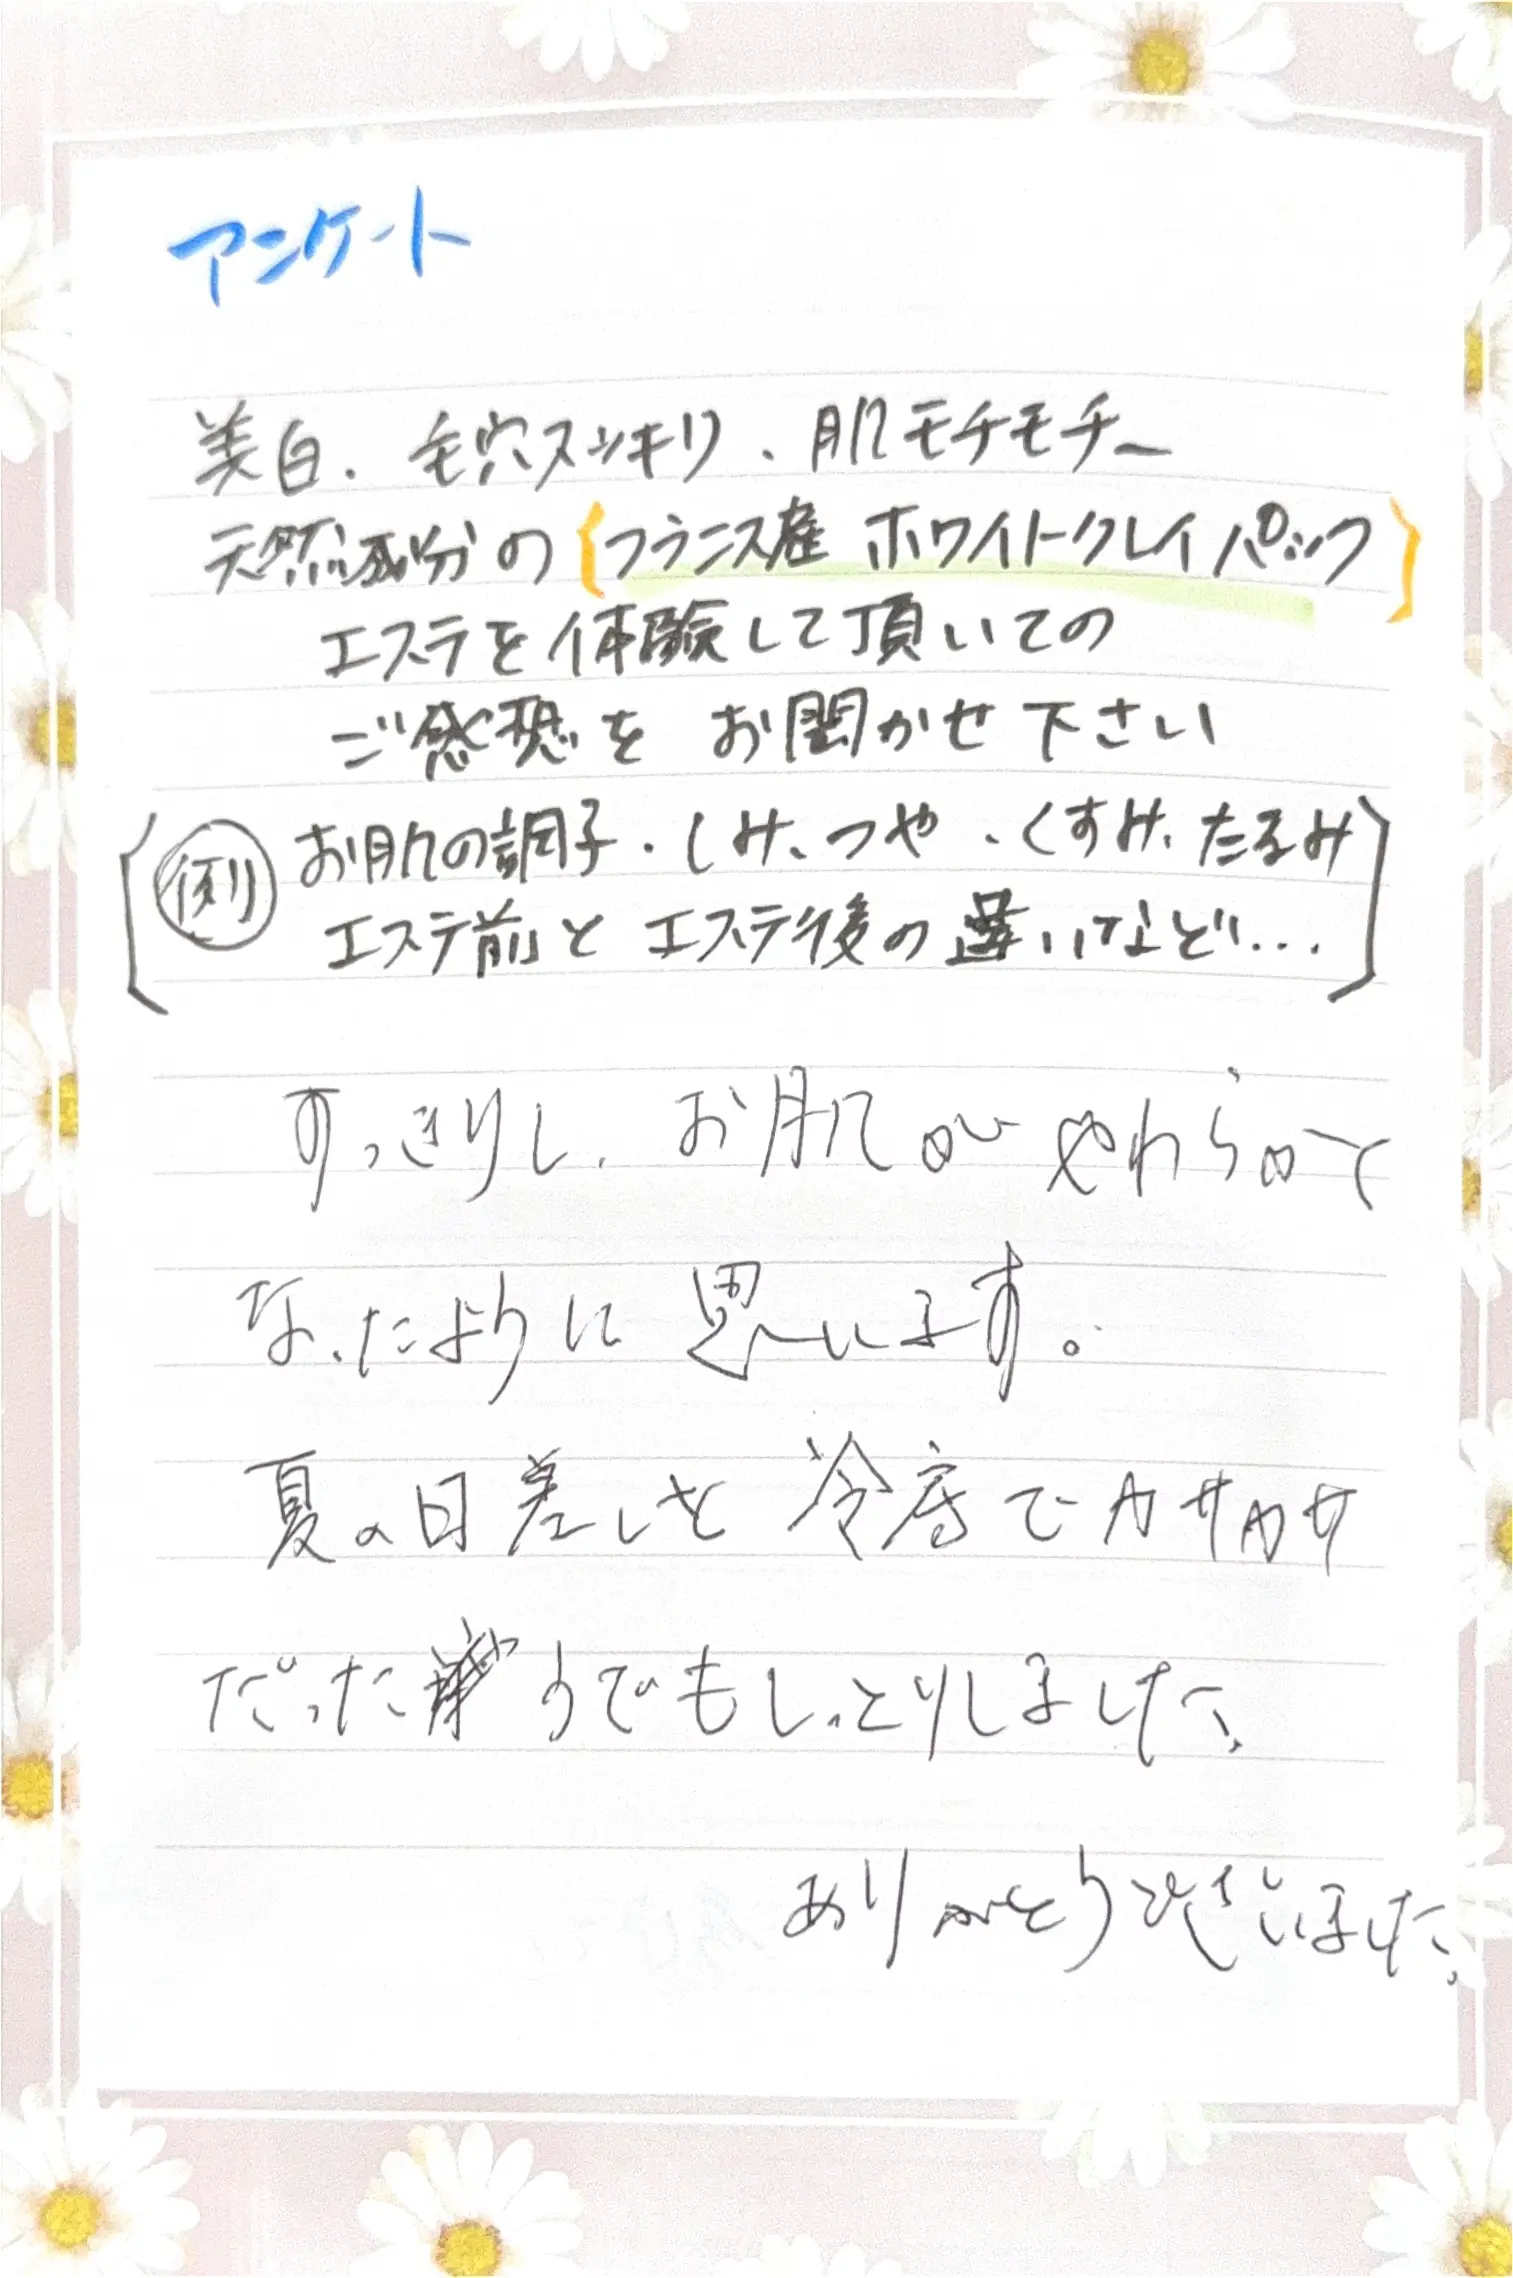 アンケート
美白、毛穴スッキリ、肌モチモチ~
天然成分の{フランス産 ホワイトクレイパック}
エステを体験して頂いての
ご感想を お聞かせ下さい
例 お肌の調子・しみ、つや、くすみ、たるみ
エステ前と エステ後の 違いなど…
すっきりし、お肌が やわらかく
なったように 思います。
夏の日差しと 冷房でカサカサ
だった うでもしっとりしました。
ありがとうございました。